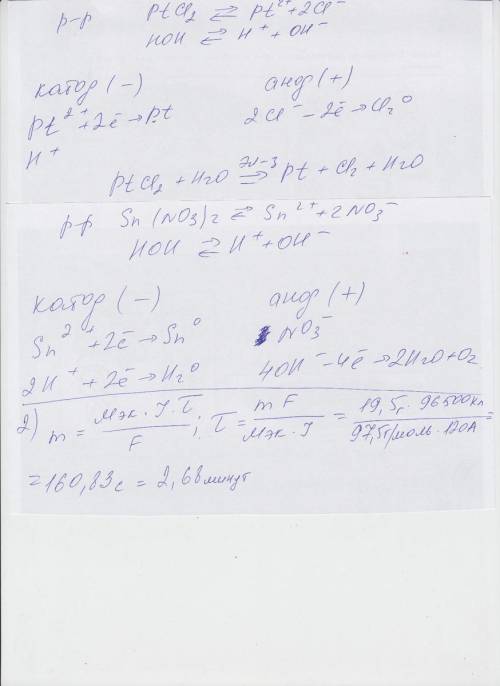 р-р PtCl2 ⇄ Pt2+ + 2Cl-
HOH ⇄ H+ + OH-
катод (-) анод (+)
Pt2+ + 2ē → Pt 2Cl- - 2ē → Cl2 0
H+
PtCl2 + H2O эл-з ⇒ Pt + Cl2 + H2O
р-р Sn(NO3)2 ⇄ Sn2+ + 2NO3-
HOH ⇄ H+ + OH-
катод (-) анод (+)
Sn2+ + 2ē → Sn0 NO3-
2H+ + 2ē → H2 0 4OH- - 4ē → 2H2O + O2
2) m = Mэк·J·τ / F ; τ = mF / Mэк·J = 19,5г·96500Кл / 97,5г/моль·120А =
= 160,83с = 2,68 минут